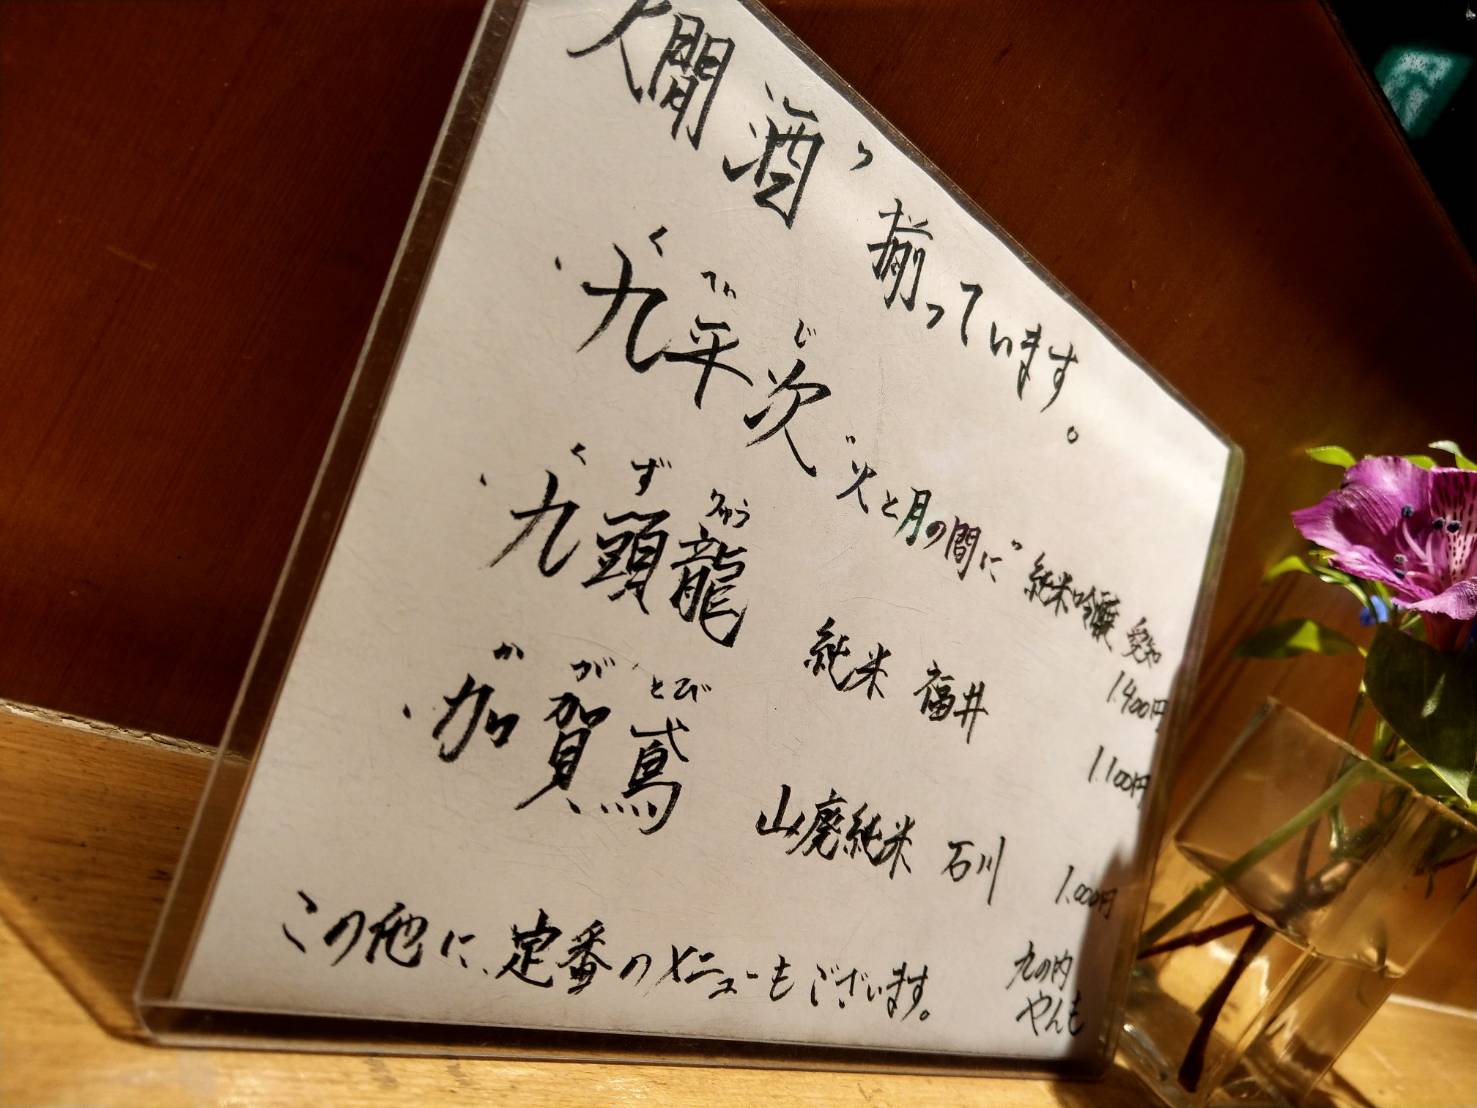 人間酒〟揃っています。
・九平次 〝火と月の間に〟 純米吟醸 愛知 1.400円
くへいじ
・九頭龍 純米 福井 1.100円
くずりゅう
・加賀鳶 山廃純米 石川 1.000円
かがとび
この他に、定番のメニューもございます。
九の内
やんも